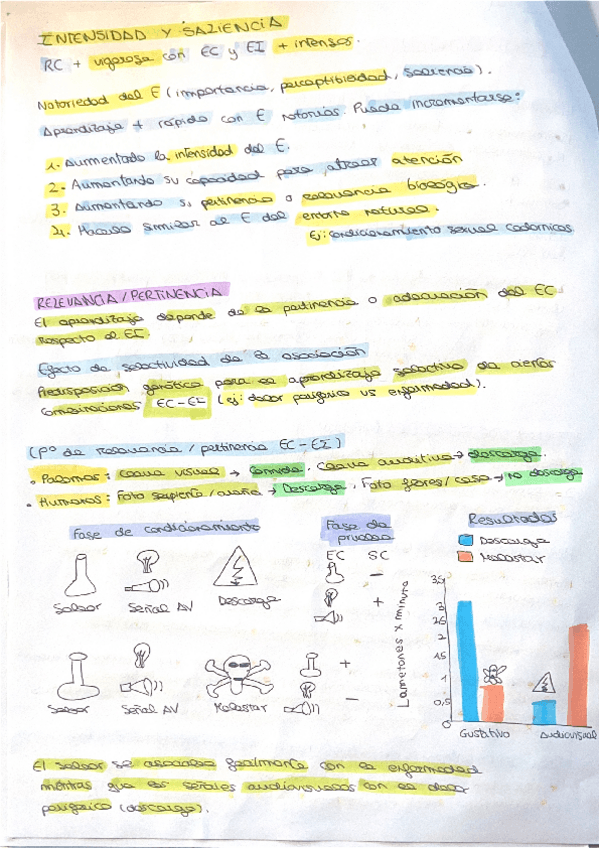 INTENSIDAD Y SALIENCIA
RC + vigorosa con EC y EI + intensos.
Notoriedad del E (importancia, perceptibilidad, saliencia).
Aprendizaje + rápido con E notorios. Puede incrementarse:
1. Aumentado la intensidad del E.
2. Aumentando su capacidad para atraer atención
3. Aumentando su pertinencia o relevancia biológica.
4. Hacerlo similar al E del entorno natural.
Ej: Condicionamiento sexual codornices
RELEVANCIA / PERTINENCIA
El aprendizaje depende de la pertinencia o adecuación del EC
respecto al EI.
Efecto de selectividad de la asociación
Predisposición genética para el aprendizaje selectivo de ciertas
combinaciones EC-EI (ej: dolor periférico vs enfermedad).
(Pº de relevancia / pertinencia EC-EI)
• Palomas: Clave visual → Comida. Clave auditiva → descarga.
• Humanos: Foto serpiente/araña → Descarga, Foto flores/casa → no descarga
Fase de condicionamiento
Fase de prueba
Resultados
EC SC
Descarga
Malestar
Sabor Señal AV Descarga
-
+
Sabor Señal AV Malestar
+
-
Lametones x minuto
3,5
3
2,5
2
1,5
1
0,5
0
Gustativo Audiovisual
El sabor se asocia + fácilmente con la enfermedad
mientras que las señales audiovisuales con el dolor
periférico (descarga).